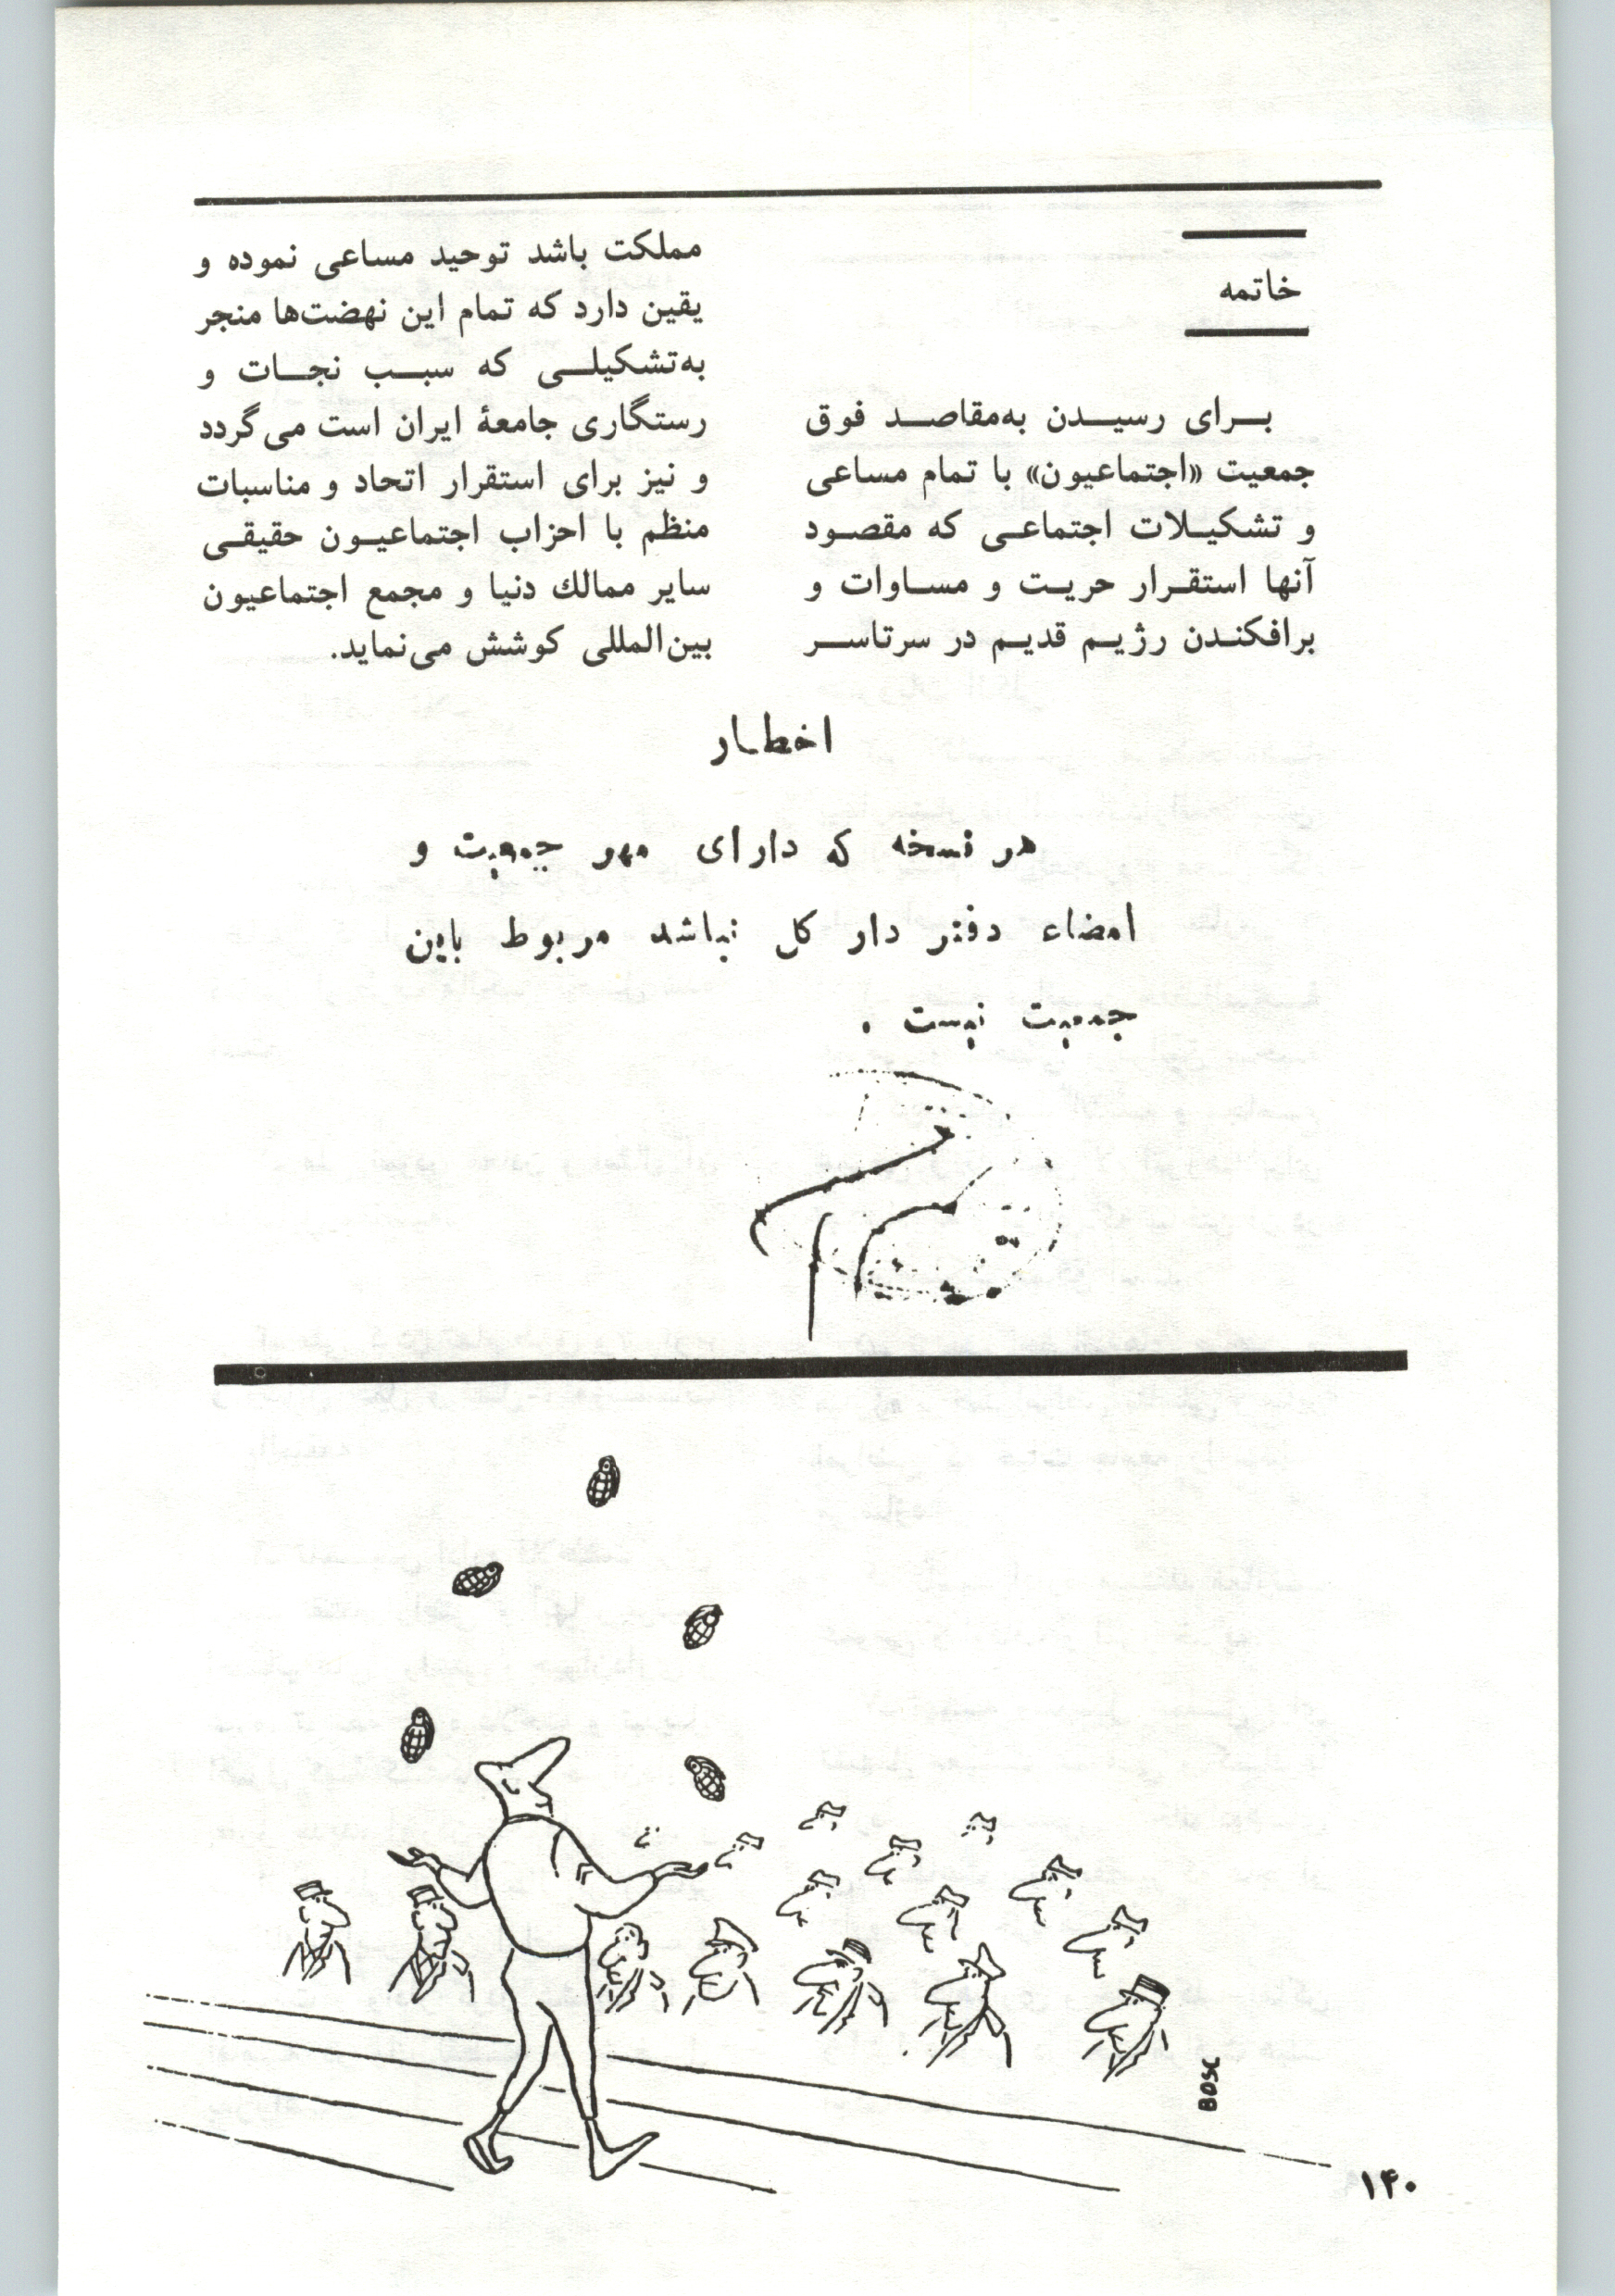 خاتمه
بـرای رسیـدن به‌مقاصـد فوق
جمعیت «اجتماعیون» با تمام مساعی
و تشکیـلات اجتماعـی که مقصـود
آنها استقـرار حریـت و مسـاوات و
برافکنـدن رژیـم قدیـم در سرتاسـر
مملکت باشد توحید مساعی نموده و
یقین دارد که تمام این نهضت‌ها منجر
به‌تشکیلـی که سبـب نجـات و
رستگاری جامعۀ ایران است می‌گردد
و نیز برای استقرار اتحاد و مناسبات
منظم با احزاب اجتماعیـون حقیقـی
سایر ممالك دنیا و مجمع اجتماعیون
بین‌المللی کوشش می‌نماید.
اخطـار
هر نسخه که دارای مهر جمعیت و
امضاء دفتر دار کل نباشد مربوط باین
جمعیت نیست .
BOSC
۱۴۰